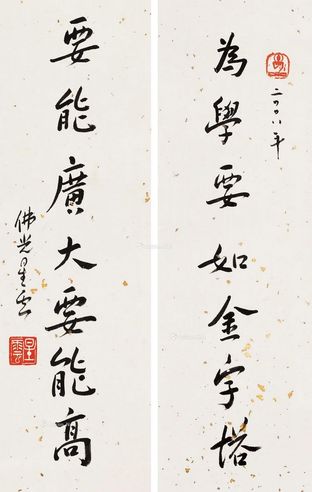 為學要如金字塔
二〇〇八年
要能廣大要能高
佛光星雲
星雲